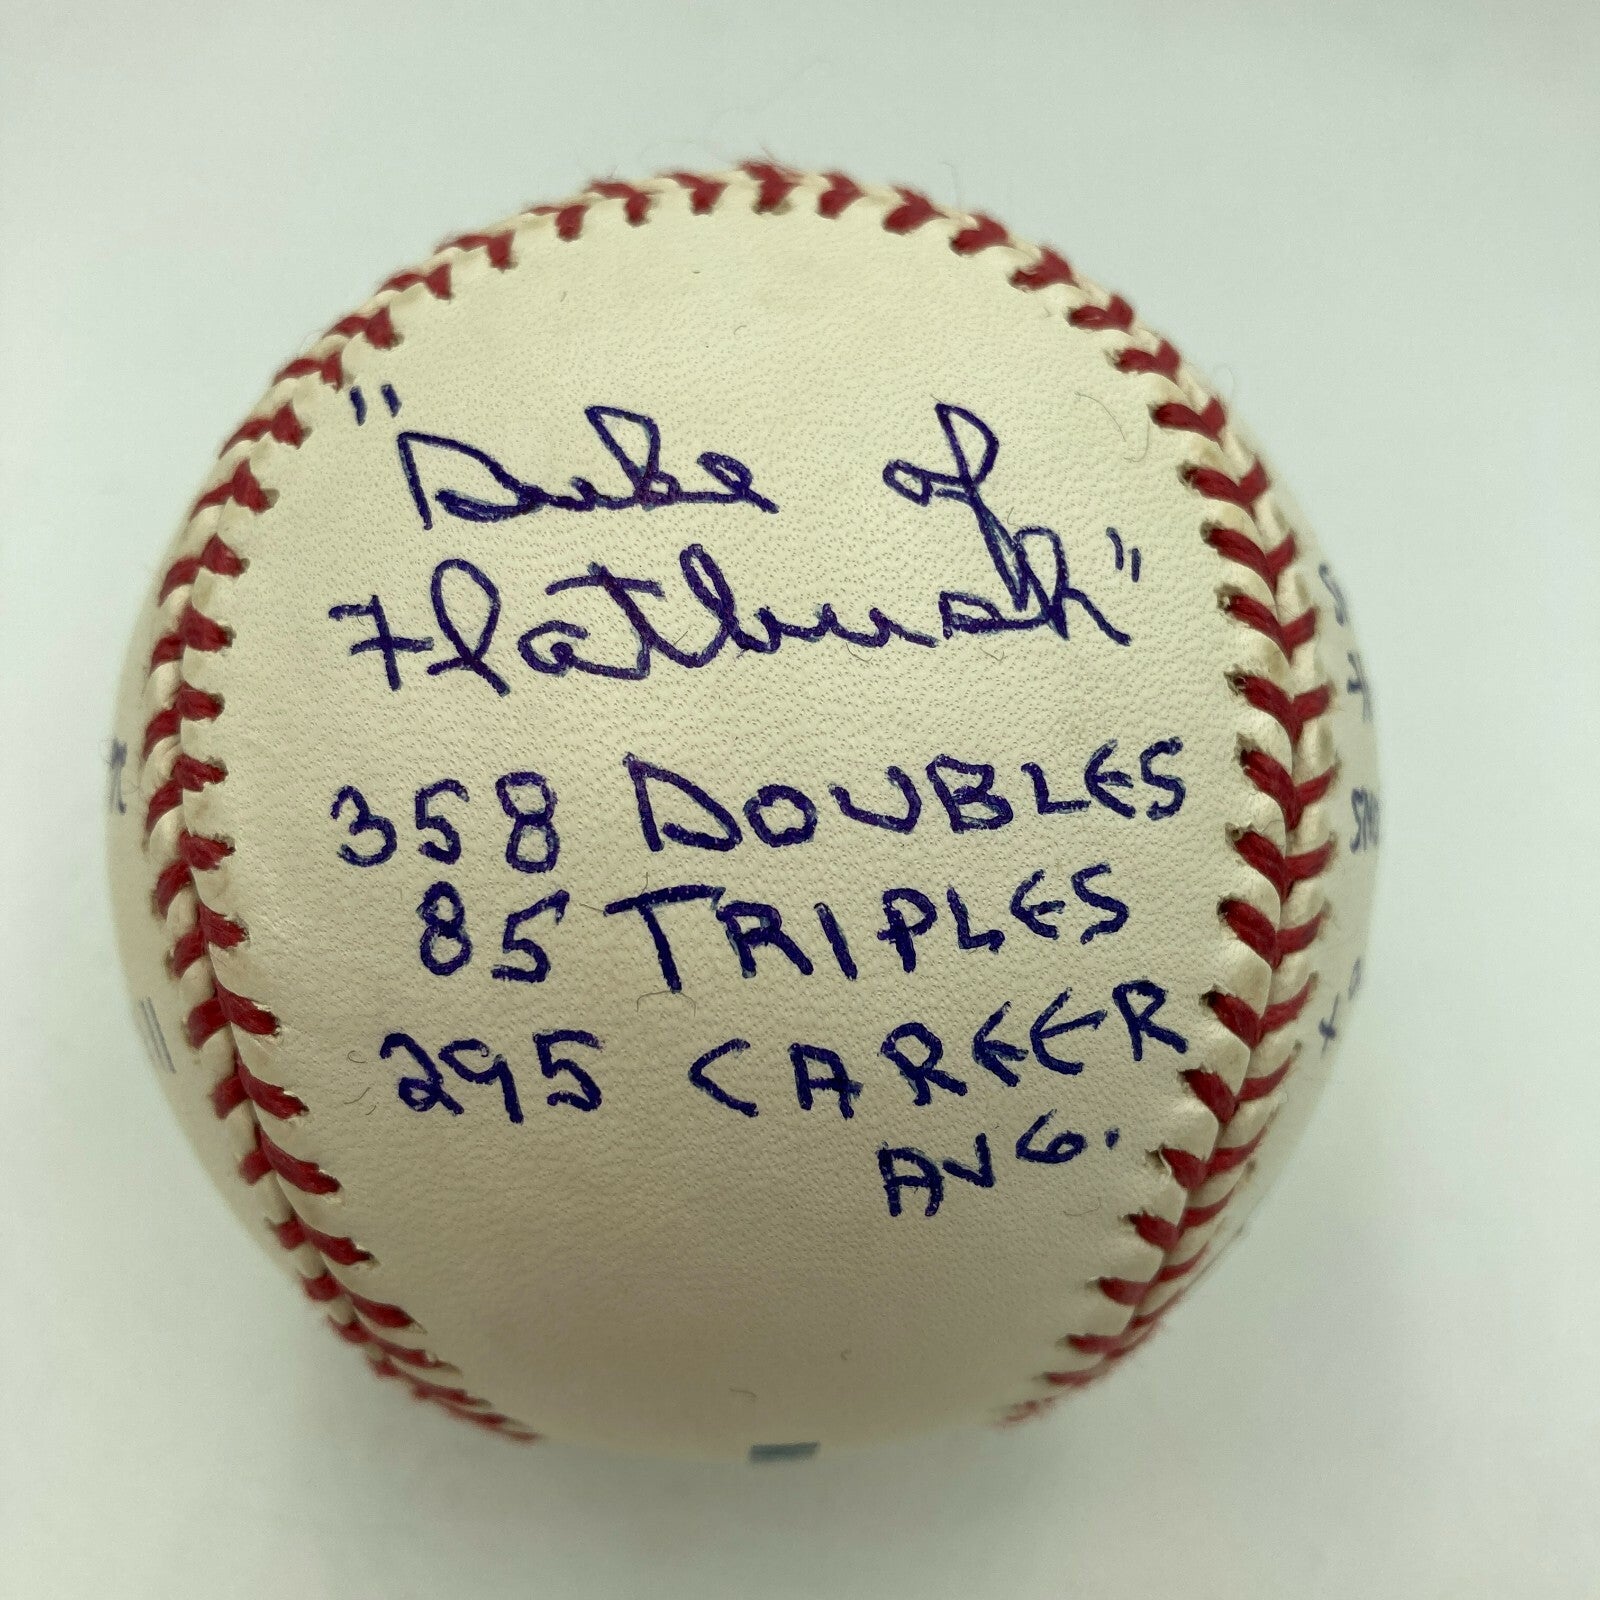 "Duke of
Flatbush"
358 DOUBLES
85 TRIPLES
295 CAREER
AVG.